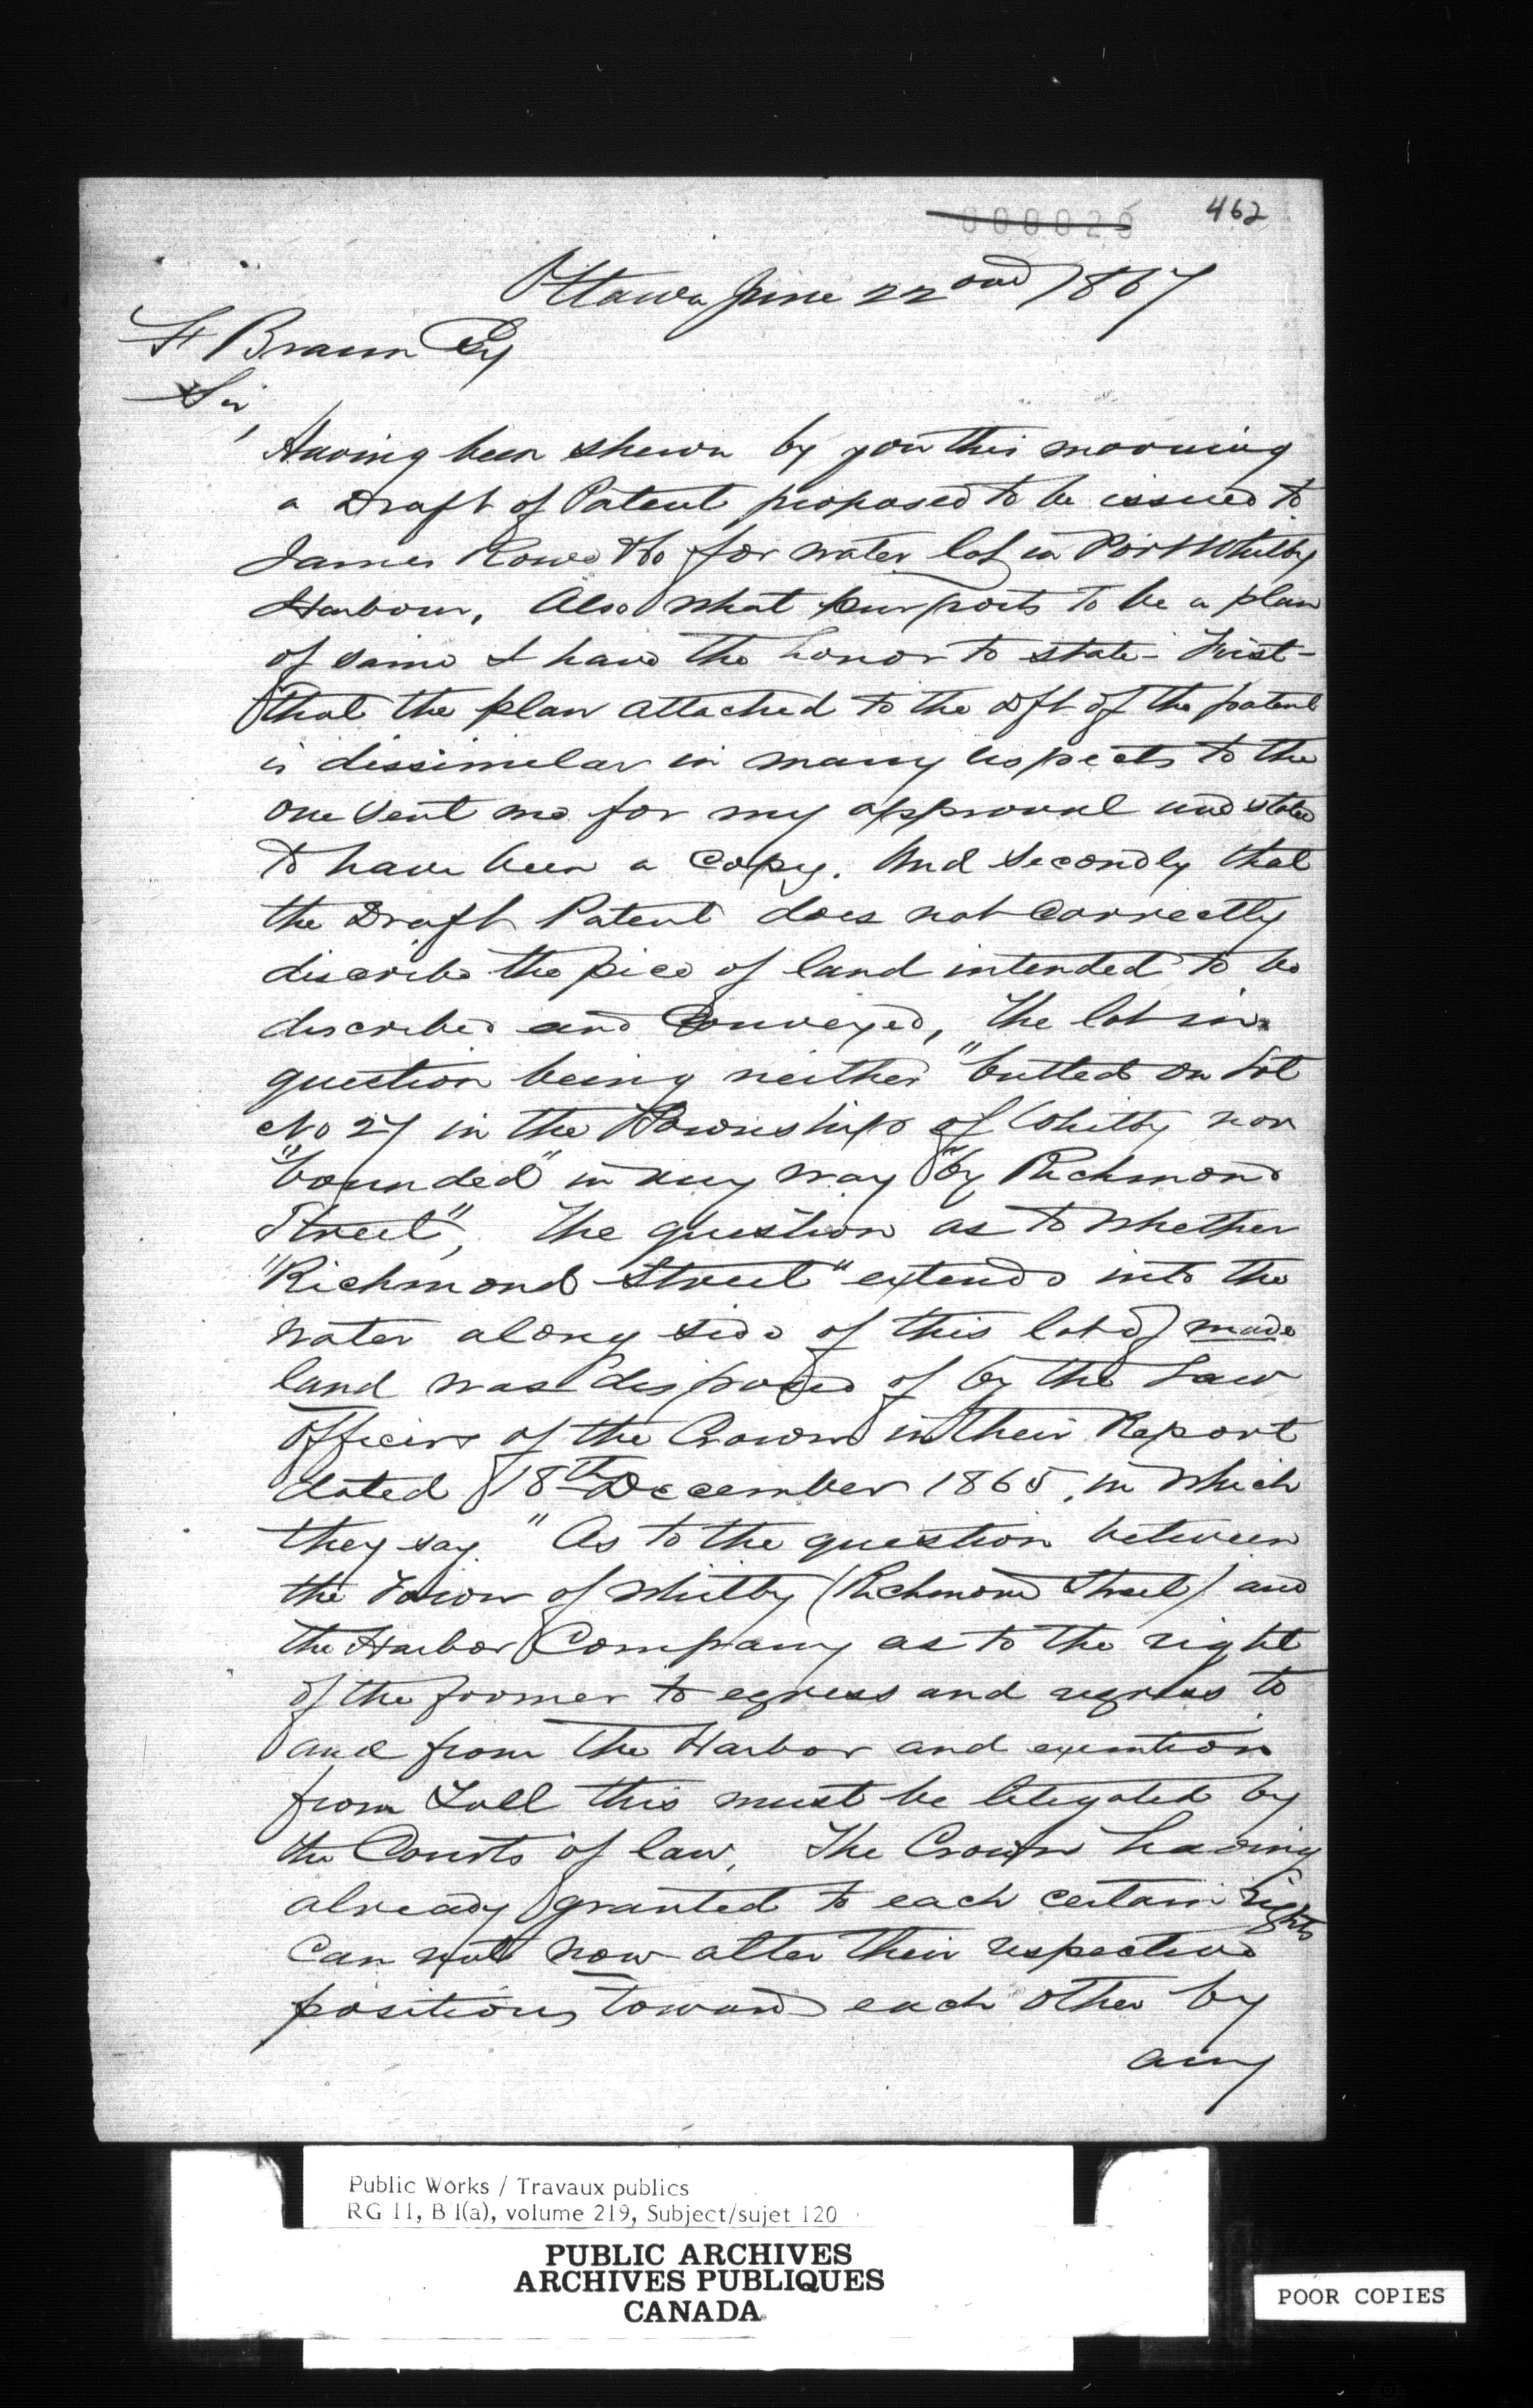 000020
462
Ottawa June 22nd 1867
F Braun Esq
Sir,
Having been shewn by you this morning
a Draft of Patent proposed to be issued to
James Rowe &Co for water lot in Port Whitby
Harbour, Also what purports to be a plan
of same I have the honor to state - First -
that the plan attached to the dft of the patent
is dissimilar in many respects to the
one sent me for my approval and stated
to have been a Copy. And Secondly that
the Draft Patent does not correctly
discribe the piece of land intended to be
described and Conveyed, The lot in
question being neither "butted on Lot
No 27 in the Township of Whitby nor
"bounded" in any way "by Richmond
Street", The question as to whether
"Richmond Street" extends into the
water along side of this lot of made
land was disposed of by the Law
Officers of the Crown in their Report
dated 18th December 1865, in which
they say. "As to the question between
the Town of Whitby (Richmond Street) and
the Harbor Company as to the right
of the former to egress and regress to
and from the Harbor and exemtion
from Toll this must be litigated by
the Courts of law, The Crown having
already granted to each certain rights
Can not now alter their respective
positions toward each other by
any
Public Works / Travaux publics
RG 11, B 1(a), volume 219, Subject/sujet 120
PUBLIC ARCHIVES
ARCHIVES PUBLIQUES
CANADA
POOR COPIES